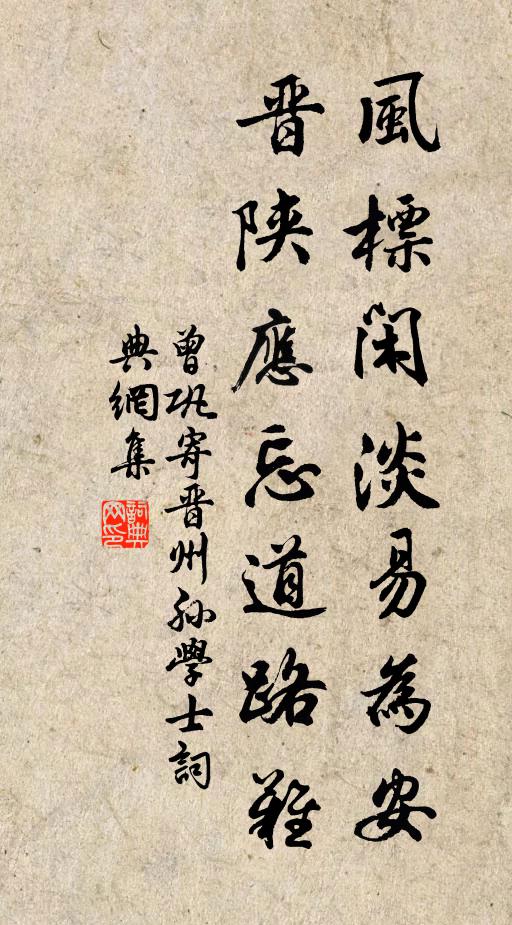 風標閑淡易為安
晋陝應忘道路難
曾巩寄晋州孙學士詞
典網集
詞典
网印